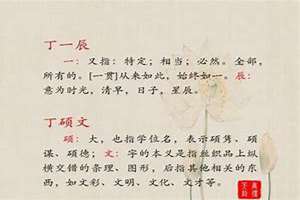 丁一辰
一：又指：特定；相当；必然。全部，
所有的。[一贯]从来如此，始终如一。辰：
意为时光，清早，日子，星辰。
丁硕文
硕：大，也指学位名，表示硕隽、硕
谋、硕德；文：字的本义是指丝织品上纵
横交错的条理、图形，后指其他相关的东
西，如文彩、文明、文化、文才等。